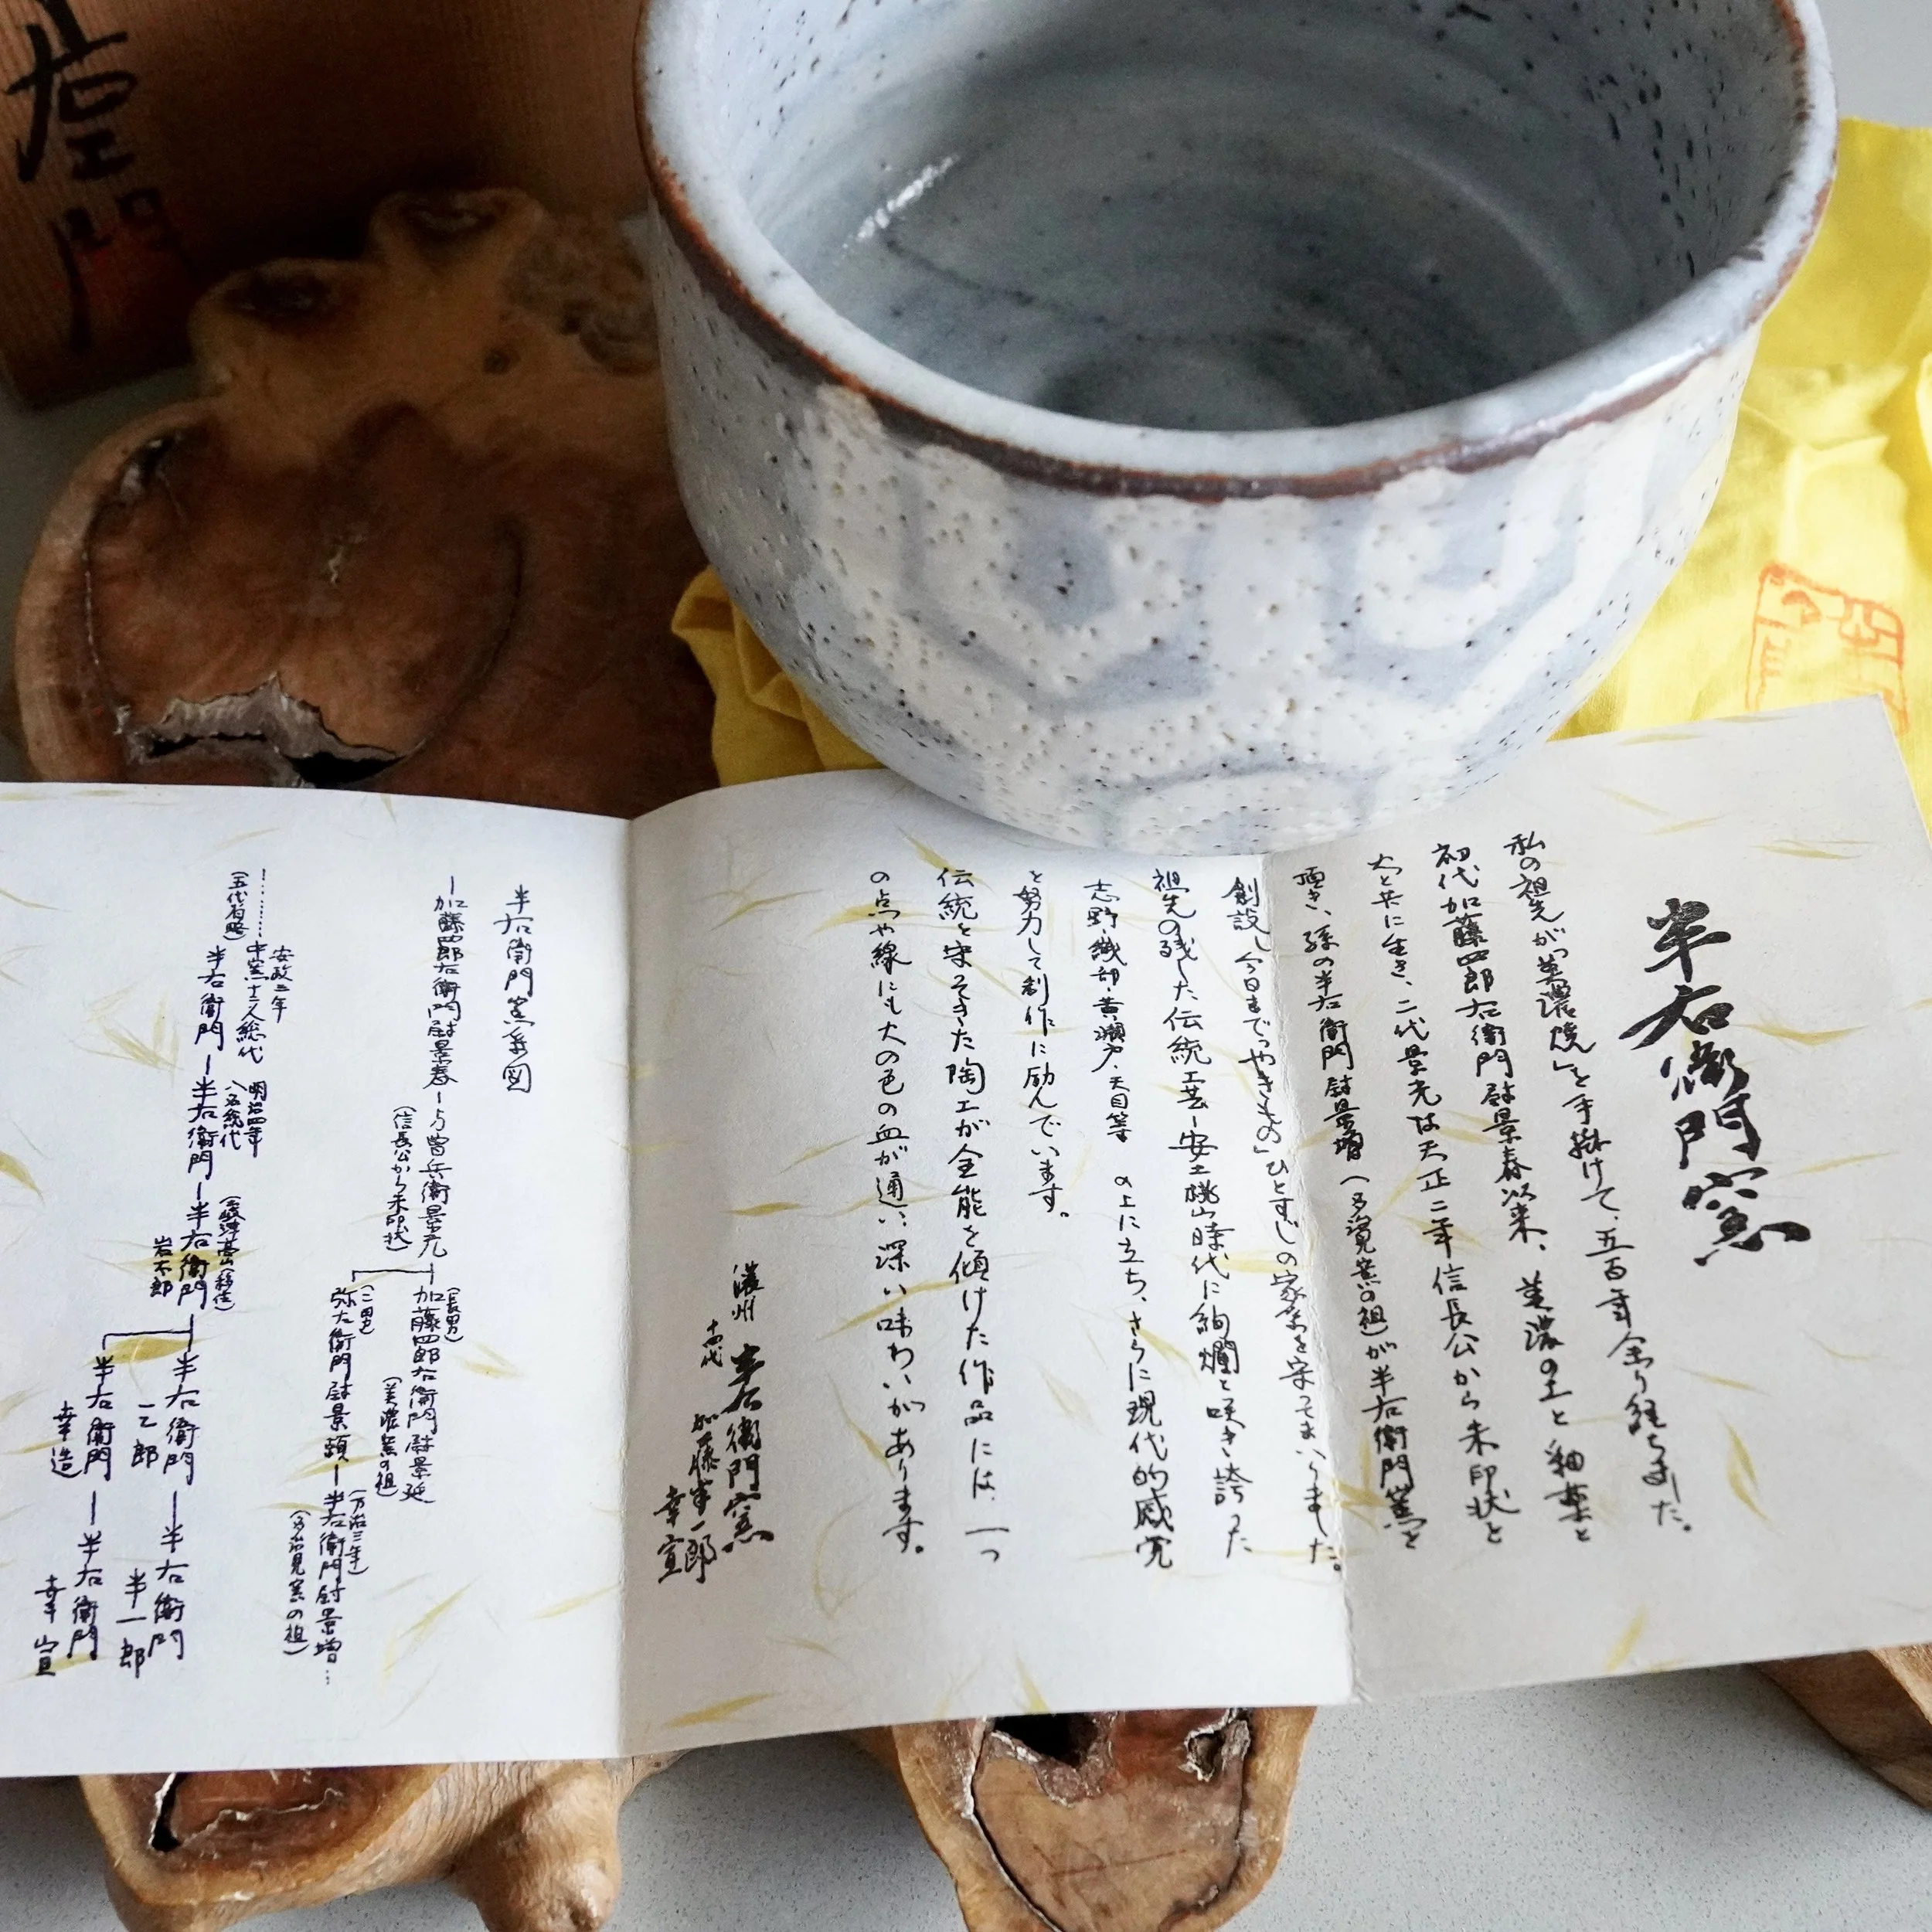 半右衛門窯
私の祖先が「美濃焼」を手掛けて、五百年余り経ちました。
初代加藤四郎右衛門尉景春以来、美濃の土と釉薬と
火と共に生き、二代景光は天正二年信長公から朱印状を
頂き、孫の半右衛門尉景増(多治見窯の祖)が半右衛門窯を
創設し今日まで「やきもの」ひとすじの家系を守ってまいりました。
祖先の残した伝統工芸-安土桃山時代に絢爛と咲き誇った
志野・織部・黄瀬戸・天目等の上に立ち、さらに現代的感覚
と努力して創作に励んでいます。
伝統を守ってきた陶工が全能を傾けた作品には、一つ
の点や線にも火の色の血が通い深い味わいがあります。
濃州 半右衛門窯
十四代 加藤半一郎
幸宣
半右衛門窯系図
加藤四郎右衛門尉景春-与曽兵衛景光
(信長公から朱印状)
(長男)
加藤四郎右衛門尉景延
(美濃窯の祖)
(二男)
弥左衛門尉景頼-半右衛門尉景増…
(万治三年)
(多治見窯の祖)
(五代省略)
安政二年
中窯十三人総代
半右衛門-半右衛門-半右衛門
明治四年
八名総代
岩不郎
半右衛門-半右衛門
一乙郎
半一郎
半右衛門-半右衛門
幸造
幸宣
右
門